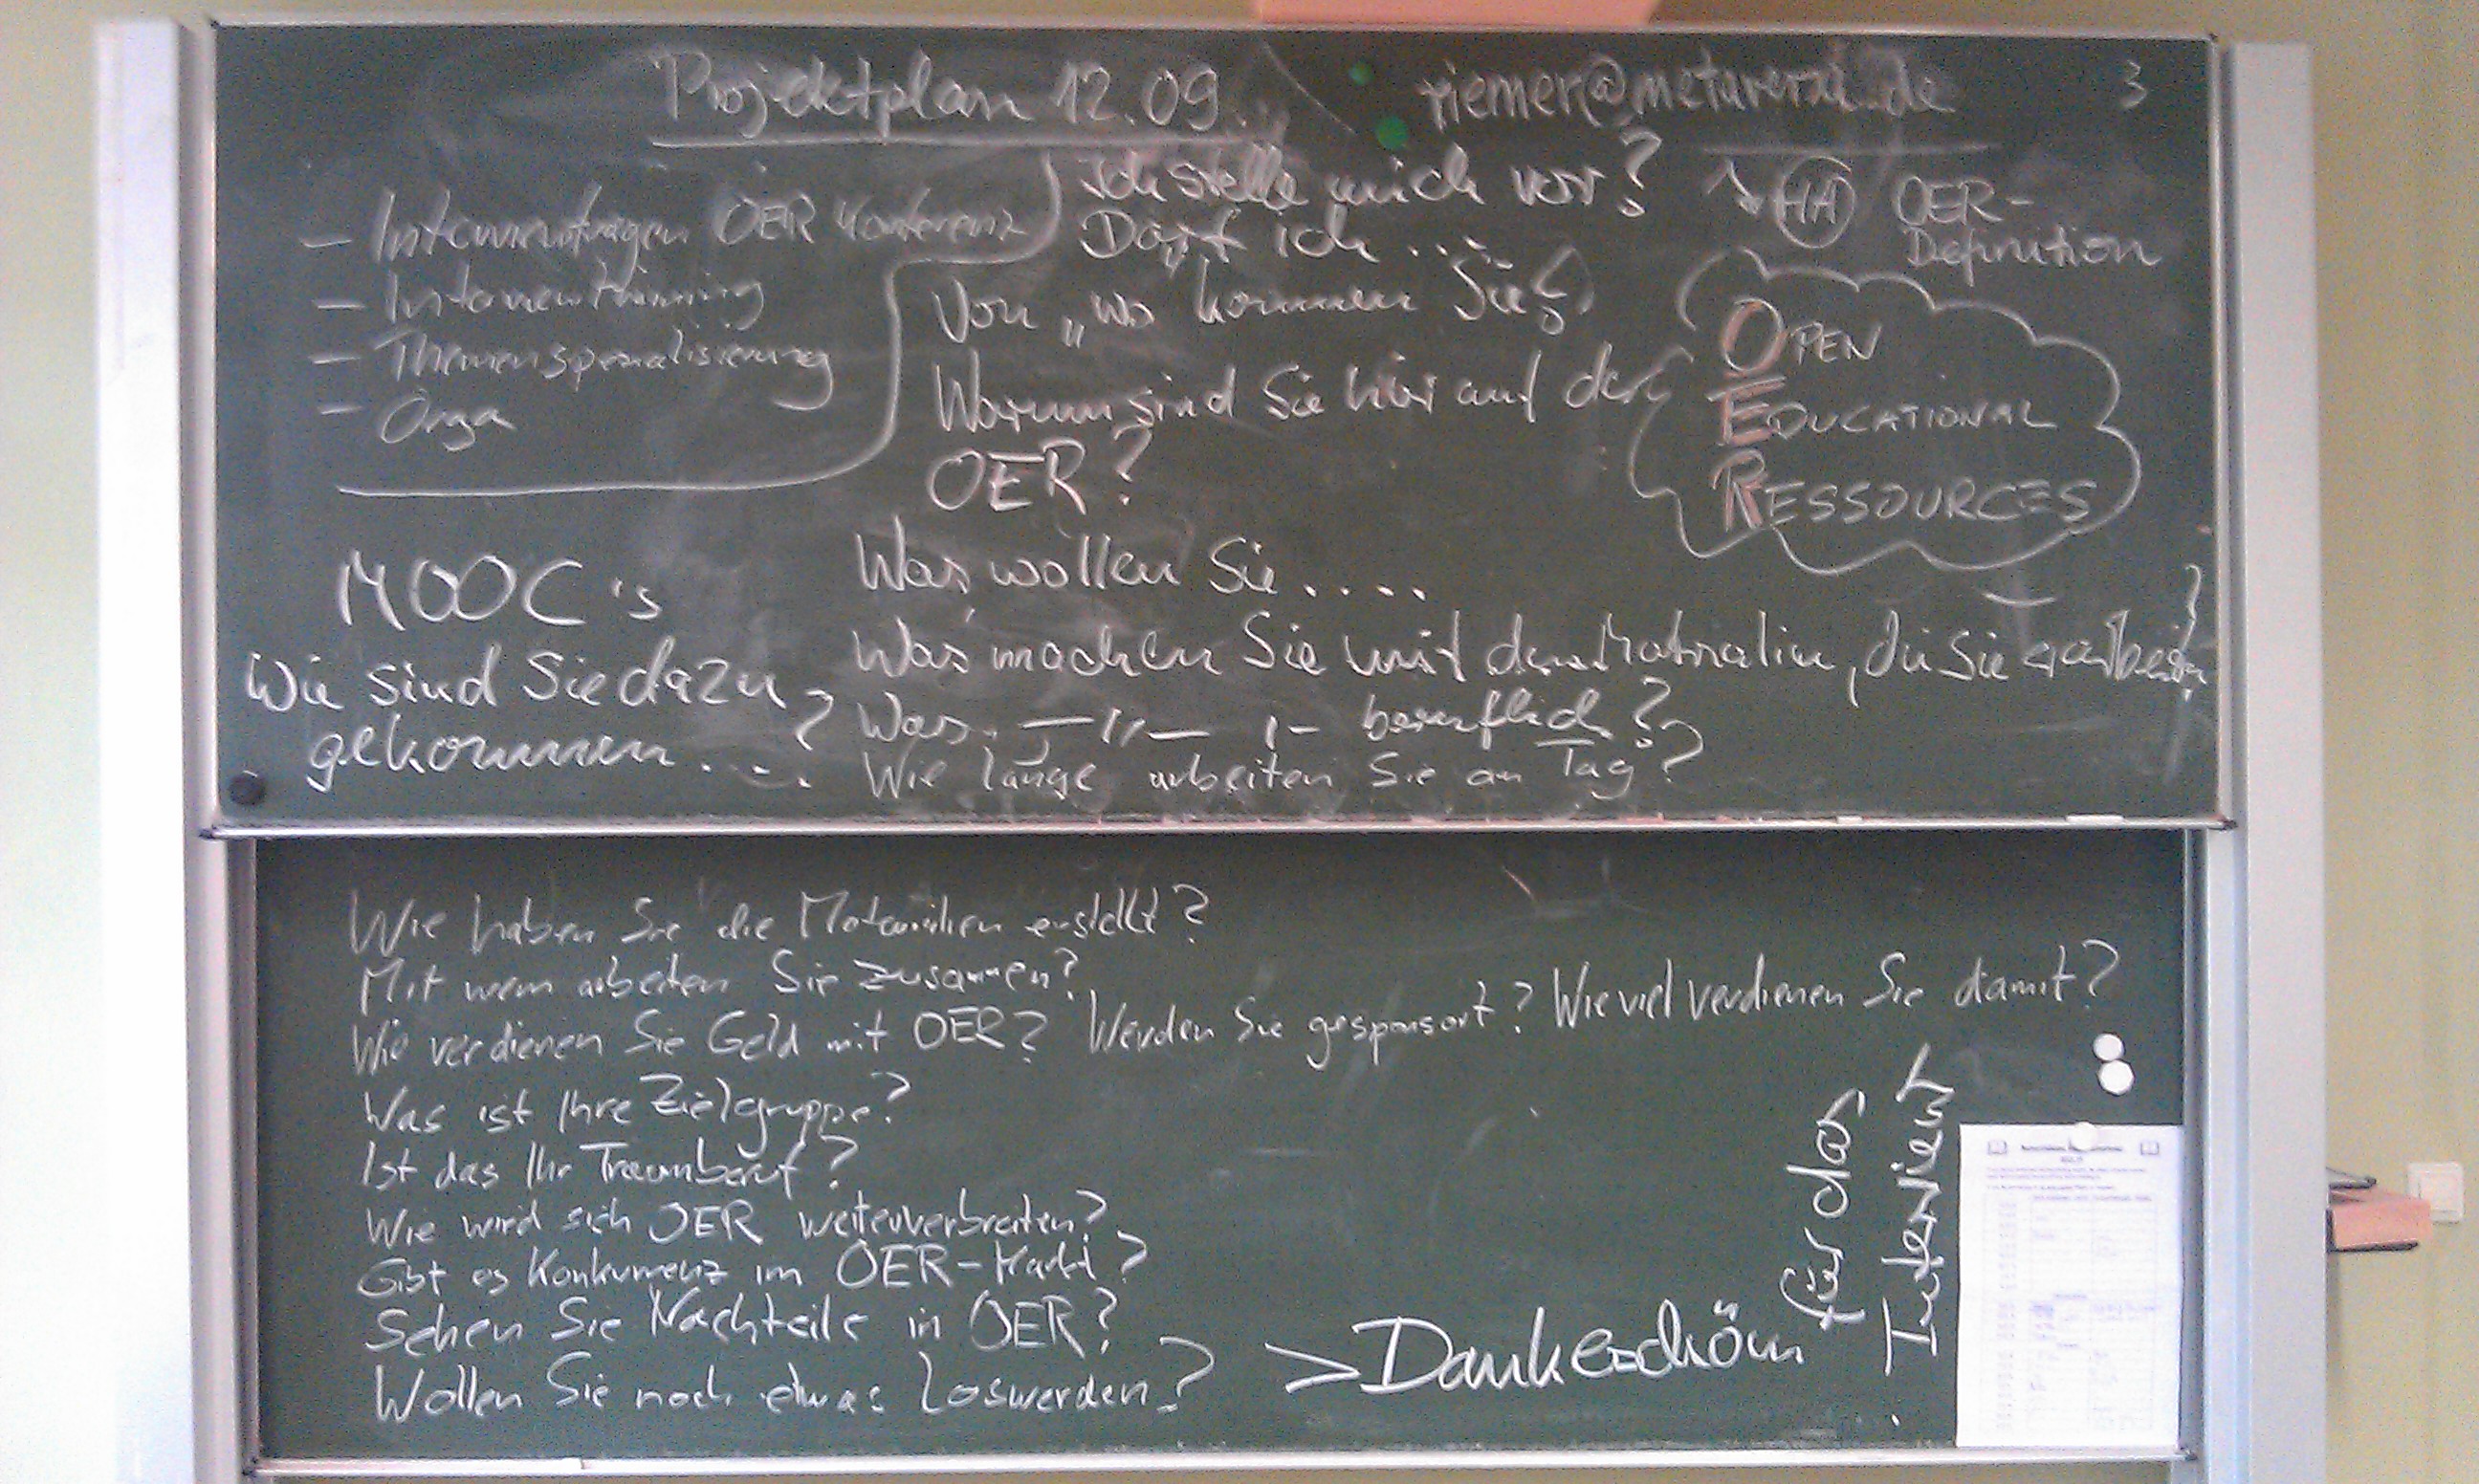 Projektplan 12.09.
riemer@metaversa.de
3
- Interviewfragen OER Konferenz
- Interviewtraining
- Themenspezialisierung
- Orga
Ich stelle mich vor?
Darf ich ...
Von „wo kommen Sie?
Warum sind Sie hier auf der
OER?
Was wollen Sie ....
Was machen Sie mit den Materialien, die Sie erarbeiten?
Was —"— beruflich?
Wie lange arbeiten Sie an Tag?
HA OER-
Definition
OPEN
EDUCATIONAL
RESSOURCES
MOOC's
Wie sind Sie dazu
gekommen ...?
Wie haben Sie die Materialien erstellt?
Mit wem arbeiten Sie zusammen?
Wie verdienen Sie Geld mit OER? Werden Sie gesponsort? Wie viel verdienen Sie damit?
Was ist Ihre Zielgruppe?
Ist das Ihr Traumberuf?
Wie wird sich OER weiterverbreiten?
Gibt es Konkurrenz im OER-Markt?
Sehen Sie Nachteile in OER?
Wollen Sie noch etwas Loswerden?
> Dankeschön
für das
Interview